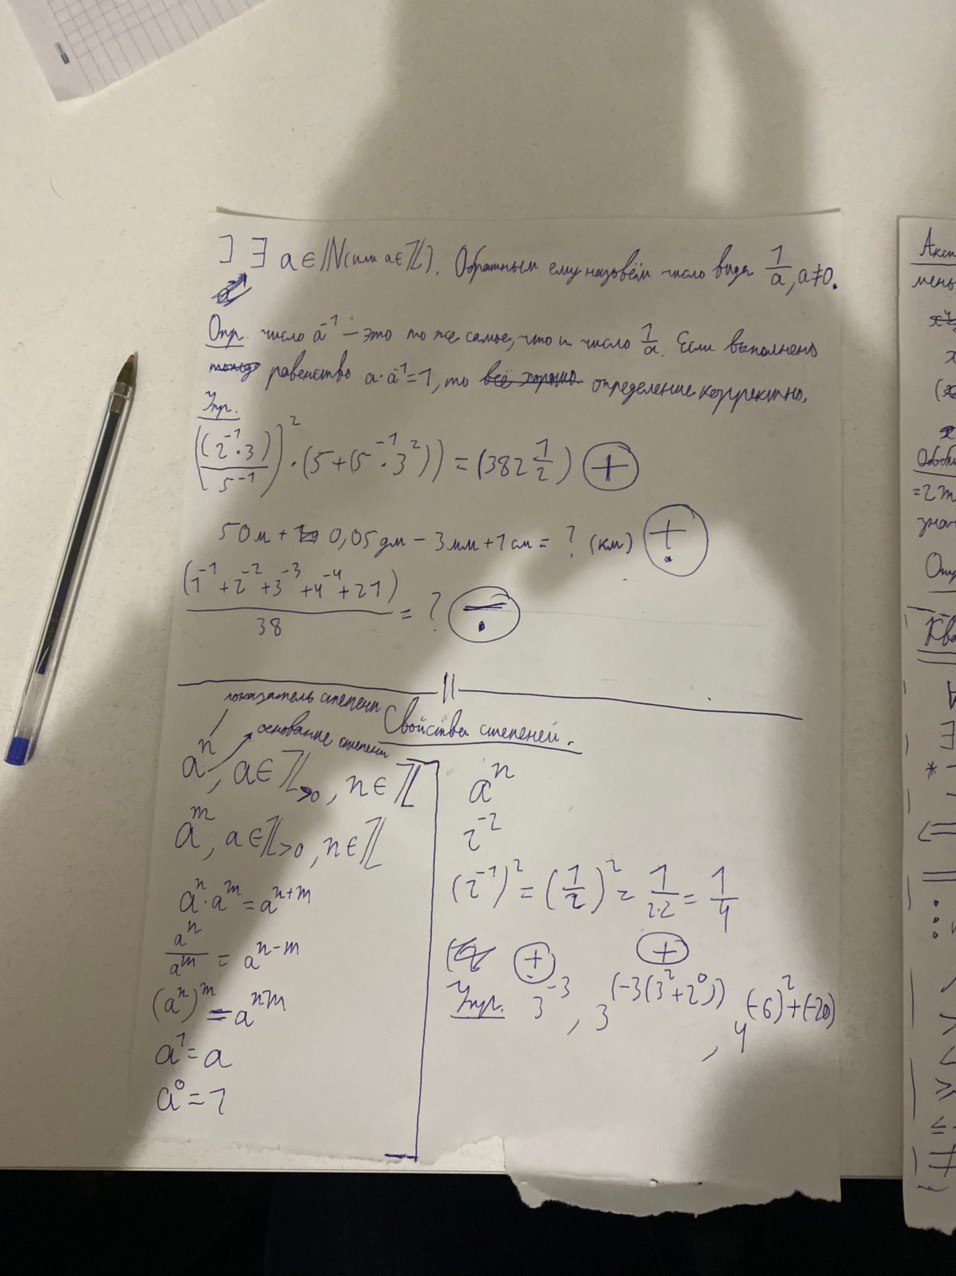 ] ∃ a ∈ ℕ (или a ∈ ℤ). Обратным ему назовём число вида 1/a, a≠0.
Опр. число a⁻¹ – это то же самое, что и число 1/a. Если выполнено
равенство a·a⁻¹=1, то определение корректно.
Упр.
((2⁻¹·3)/5⁻¹)²·(5+(5⁻¹·3²)) = (382 1/2) (+)
50м + 0,05дм – 3мм + 1см = ? (км) (+.)
(1⁻¹+2⁻²+3⁻³+4⁻⁴+21)/38 = ?
показатель степени
основание степени
Свойства степеней.
aⁿ, a∈ℤ>0, n∈ℤ
aᵐ, a∈ℤ>0, n∈ℤ
aⁿ·aᵐ=aⁿ⁺ᵐ
aⁿ/aᵐ = aⁿ⁻ᵐ
(aⁿ)ᵐ=aⁿᵐ
a¹=a
a⁰=1
aⁿ
2⁻²
(2⁻¹)²=(1/2)²=1/(2·2)=1/4
(+) (+)
Упр. 3⁻³, 3^(-3(3²+2⁰)), 4^((-6)²+(-20))
Обоб
=2m
знач
Опр
Кв
∃
*
⇐
<
≥
≤